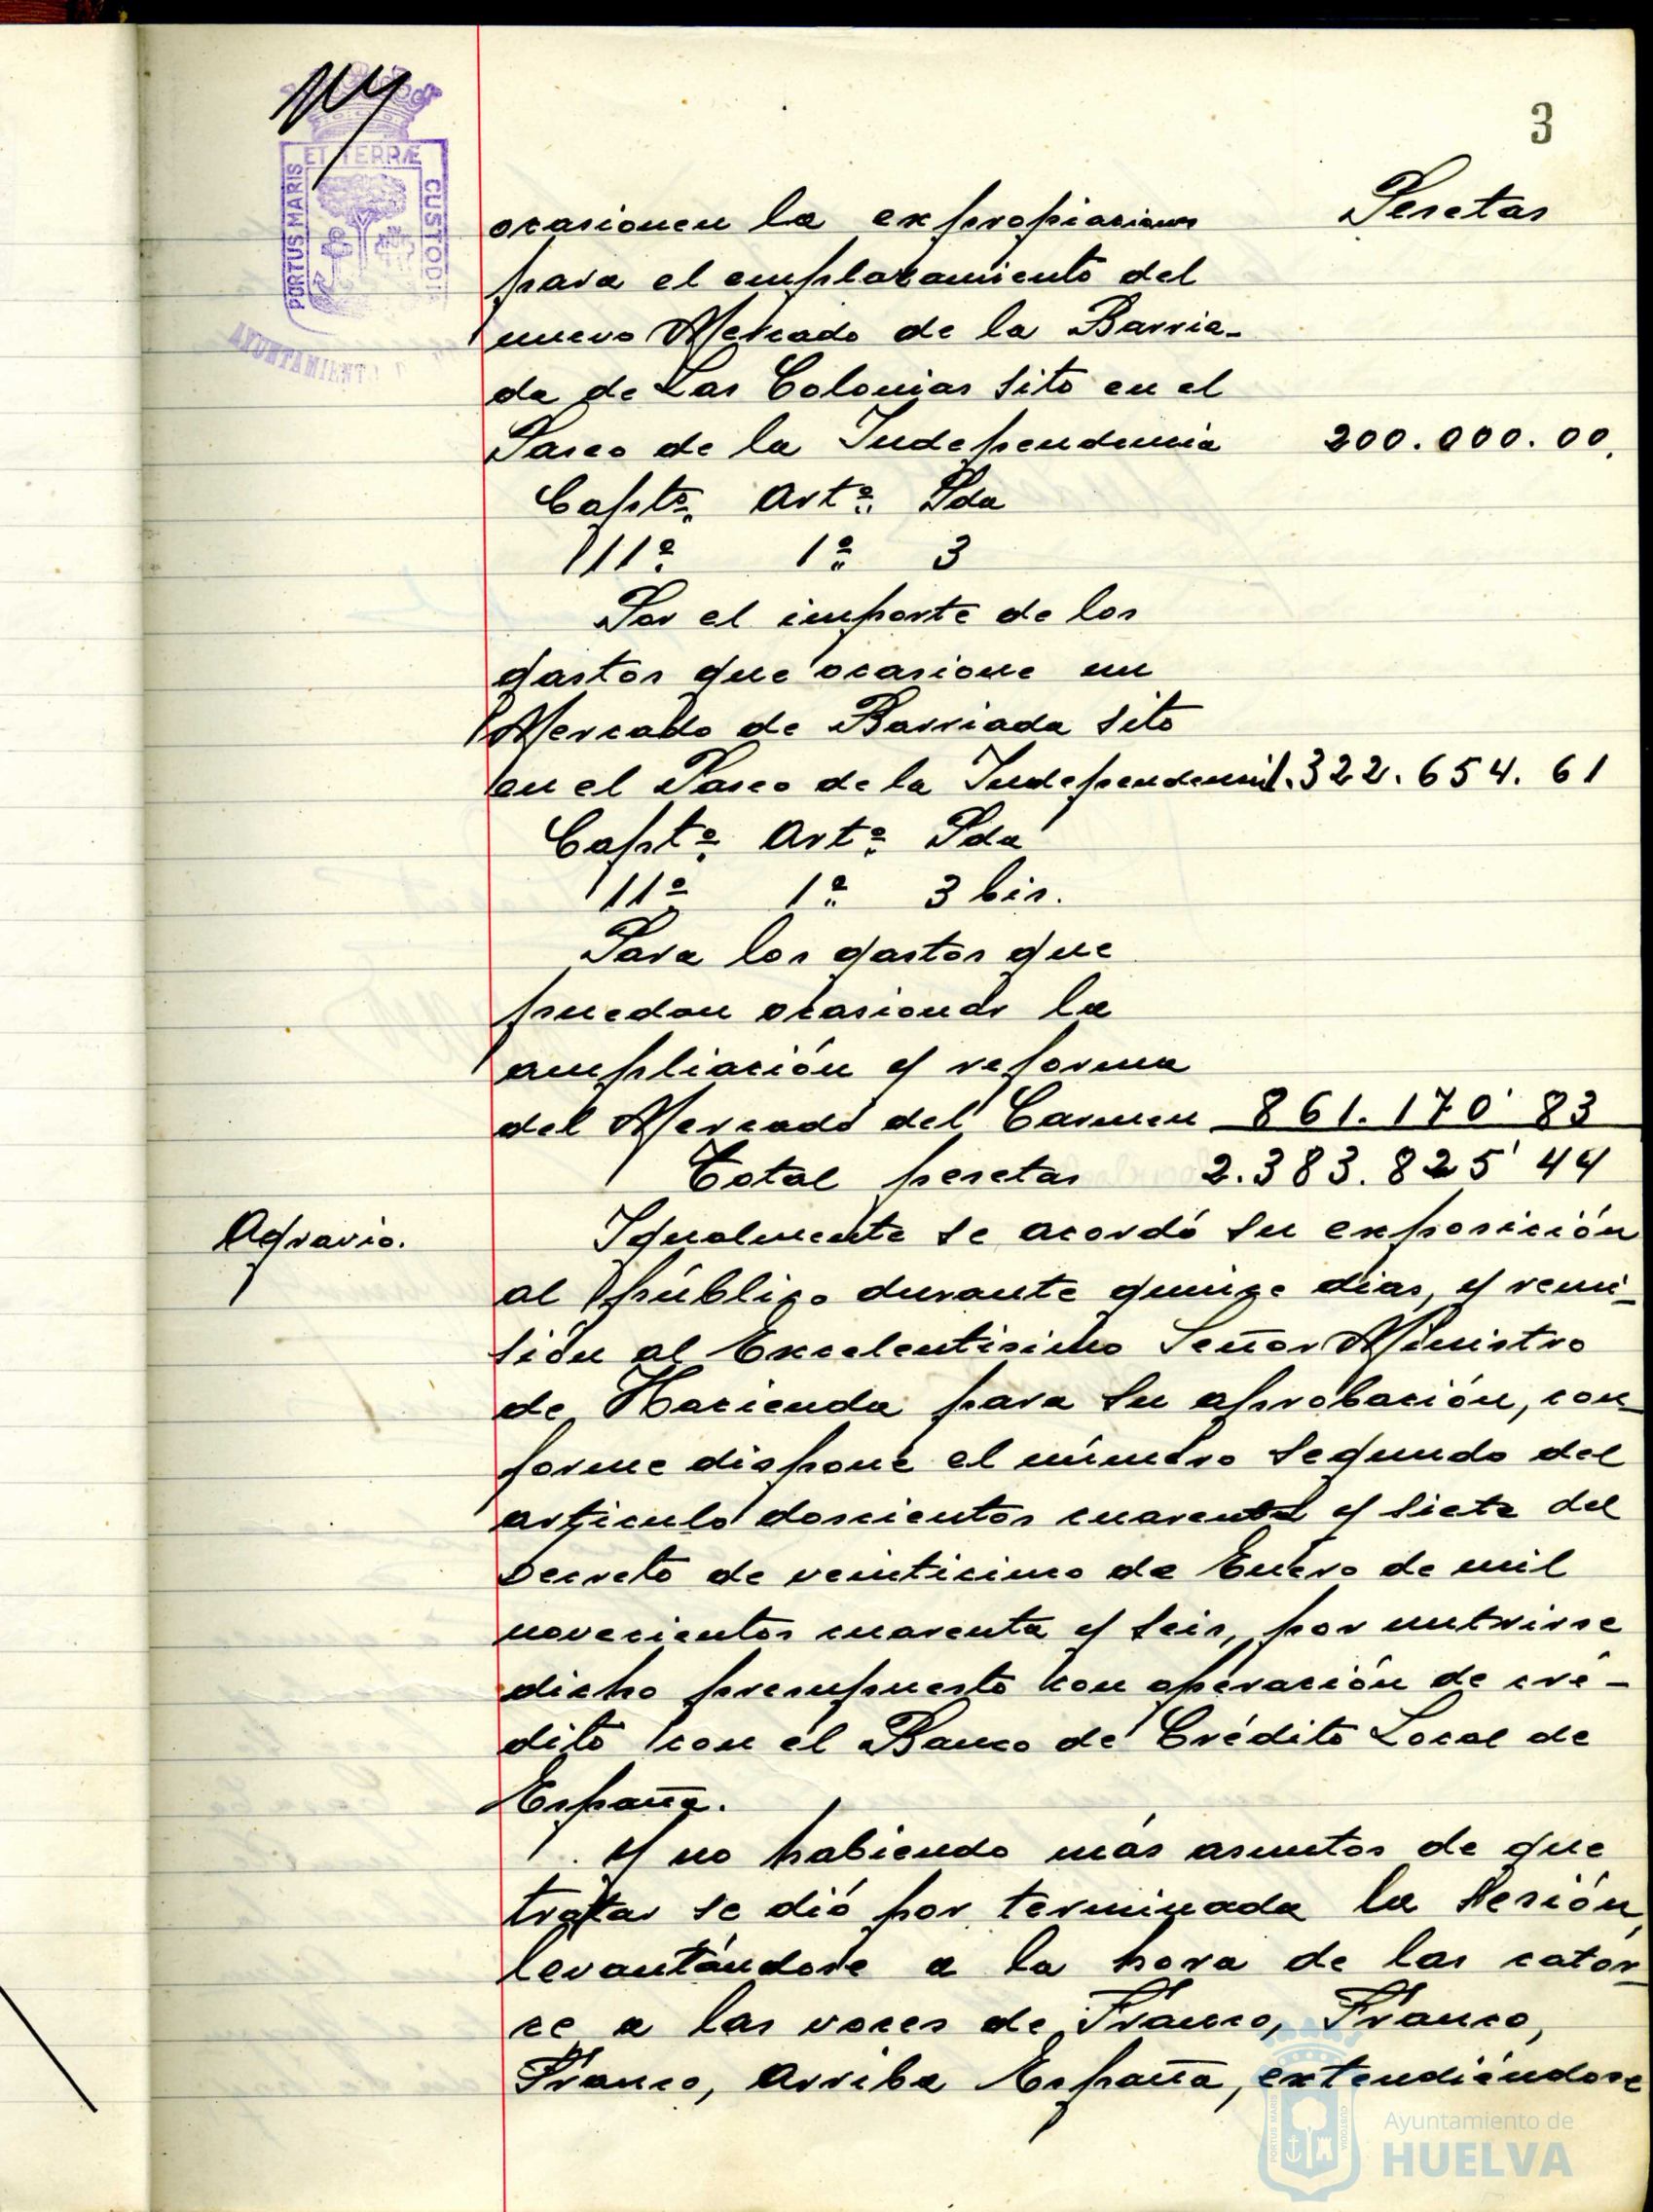 3
ET TERRÆ
PORTUS MARIS
CUSTODIA
AYUNTAMIENTO D
Pesetas
ocasionen la expropiaciones
para el emplazamiento del
nuevo Mercado de la Barria-
da de Las Colonias sito en el
Paseo de la Independencia 200.000.00,
Captº. Artº. Pda
11º. 1º. 3
Por el importe de los
gastos que ocasione un
Mercado de Barriada sito
en el Paseo de la Independencia 1.322.654.61
Captº. Artº. Pda
11º 1º. 3 bis.
Para los gastos que
puedan ocasionar la
ampliación y reforma
del Mercado del Carmen 861.170'83
Total pesetas 2.383.825'44
Agravio.
Igualmente se acordó su exposición
al público durante quince dias, y remi-
sión al Excelentisimo Señor Ministro
de Hacienda para su aprobación, con-
forme dispone el número segundo del
articulo doscientos cuarenta y siete del
Decreto de veinticinco de Enero de mil
novecientos cuarenta y seis, por nutrirse
dicho presupuesto con operación de cré-
dito con el Banco de Crédito Local de
España.
Y no habiendo más asuntos de que
tratar se dió por terminada la sesión,
levantándose a la hora de las cator-
ce a las voces de Franco, Franco,
Franco, Arriba España, extendiéndose
Ayuntamiento de
HUELVA